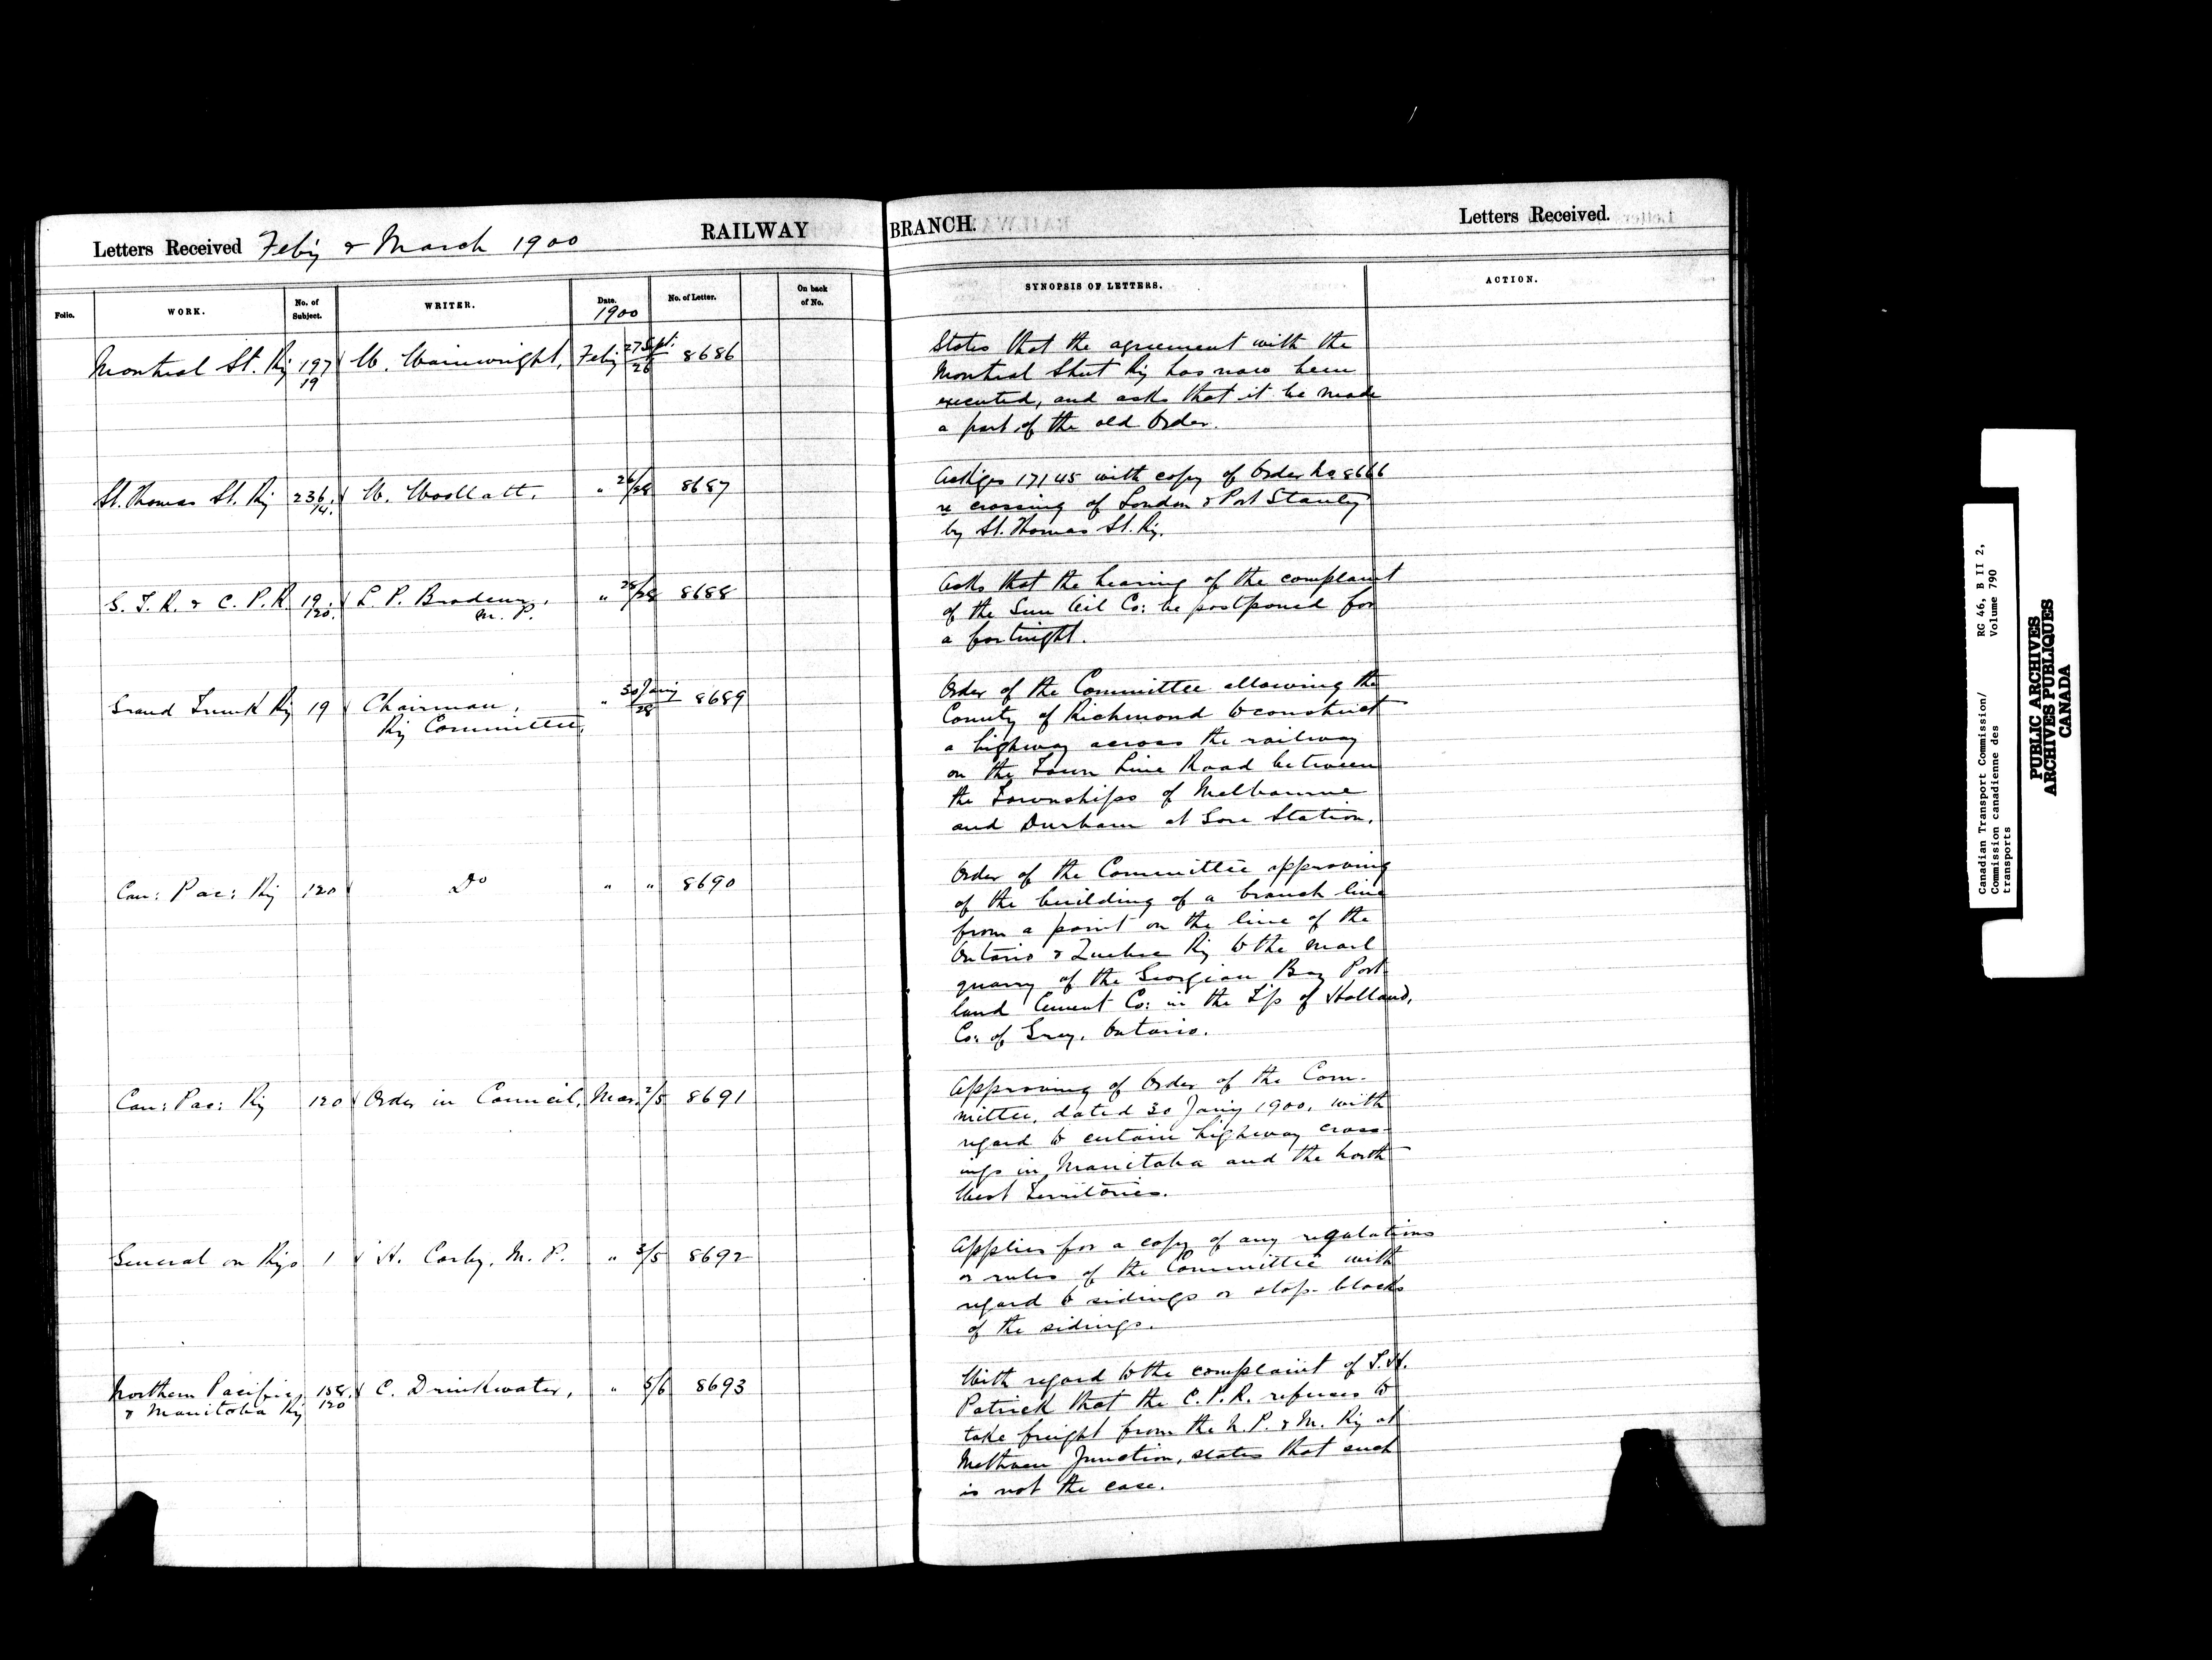 Letters Received Feby & March 1900
RAILWAY BRANCH.
Letters Received.
Folio.
WORK.
No. of Subject.
WRITER.
Date. 1900
No. of Letter.
On back of No.
SYNOPSIS OF LETTERS.
ACTION.
Montreal St. Ry 197/19 W. Wainwright, Feby 27 Sept./26 8686
States that the agreement with the
Montreal Street Ry has now been
executed, and asks that it be made
a part of the old Order.
St. Thomas St. Ry 236/14. W. Woollatt. " 26/28 8687
Ackges 17145 with copy of Order No 8666
re crossing of London & Port Stanley
by St. Thomas St. Ry.
G. T. R. & C. P. R 19/120. L. P. Brodeur, " 28/28 8688
M. P.
Asks that the hearing of the complaint
of the Sun Oil Co: be postponed for
a fortnight.
Grand Trunk Ry 19 Chairman, " 30 Jany/28 8689
Ry Committee,
Order of the Committee allowing the
County of Richmond to construct
a highway across the railway
on the Town Line Road between
the Townships of Melbourne
and Durham at Gore Station.
Can: Pac: Ry 120 Do " " 8690
Order of the Committee approving
of the building of a branch line
from a point on the line of the
Ontario & Quebec Ry to the marl
quarry of the Georgian Bay Port
land Cement Co: in the T'p of Holland,
Co: of Grey, Ontario.
Can: Pac: Ry 120 Order in Council, Mar. 2/5 8691
Approving of Order of the Com-
mittee, dated 30 Jany 1900, with
regard to certain highway cross-
ings in Manitoba and the North
West Territories.
General on Rys 1 H. Corby, M. P. " 3/5 8692
Applies for a copy of any regulations
or rules of the Committee with
regard to sidings or stop-blocks
of the sidings.
Northern Pacific 158. C. Drinkwater, " 5/6 8693
& Manitoba Ry 120
With regard to the complaint of T. H.
Patrick that the C. P. R. refuses to
take freight from the N. P. & M. Ry at
Methven Junction, states that such
is not the case.
Canadian Transport Commission/ RG 46, B II 2,
Commission canadienne des Volume 790
transports
PUBLIC ARCHIVES
ARCHIVES PUBLIQUES
CANADA